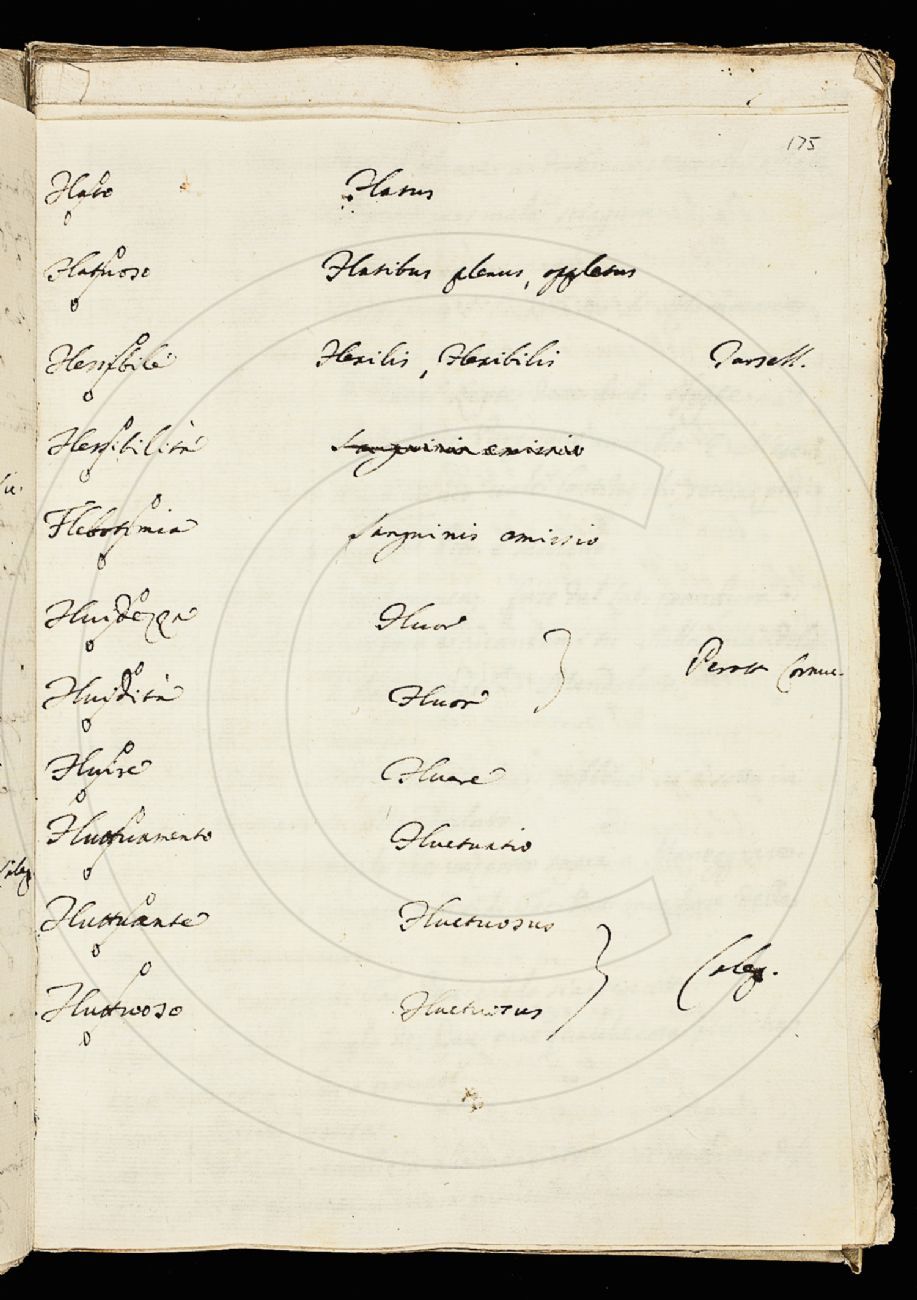 175
Flato Flatus
Flatuoso Flatibus plenus, oppletus
Flessibile Flexilis, Flexibilis Passett.
Flessibilità Sanguinis emissio
Flebotomia Sanguinis emissio
Fluidezza Fluor
Fluidità Fluor Perott. Cornuc.
Fluire Fluere
Fluttuamento Fluctuatio
Fluttuante Fluctuosus
Fluttuoso Fluctuosus Calep.